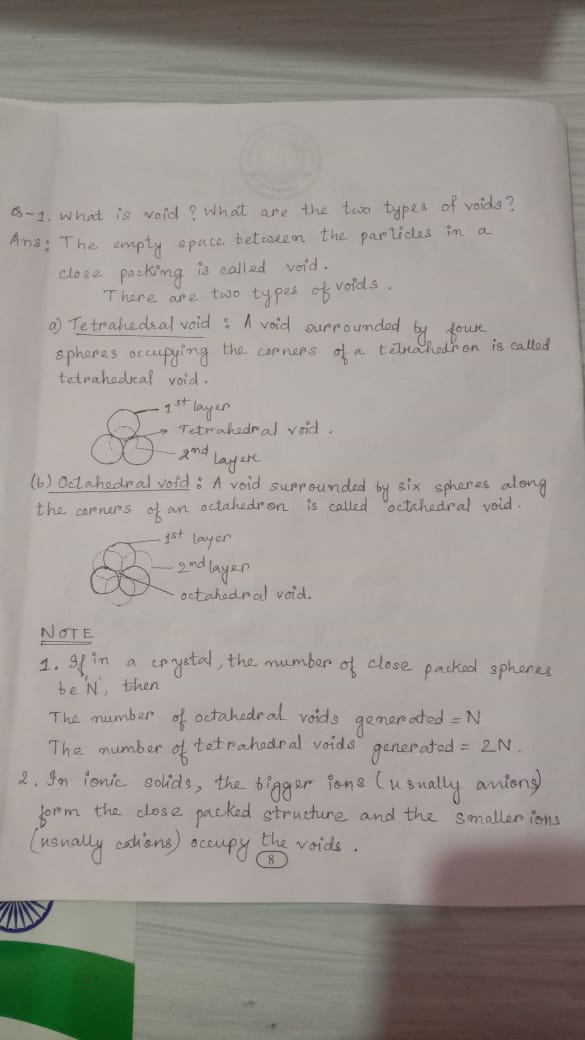 Q-1. What is void? What are the two types of voids?
Ans: The empty space between the particles in a
close packing is called void.
There are two types of voids.
a) Tetrahedral void : A void surrounded by four
spheres occupying the corners of a tetrahedron is called
tetrahedral void.
1st layer
Tetrahedral void.
2nd layer
(b) Octahedral void : A void surrounded by six spheres along
the corners of an octahedron is called octahedral void.
1st layer
2nd layer
octahedral void.
NOTE
1. If in a crystal, the number of close packed spheres
be 'N', then
The number of octahedral voids generated = N
The number of tetrahedral voids generated = 2N.
2. In ionic solids, the bigger ions (usually anions)
form the close packed structure and the smaller ions
(usually cations) occupy the voids.
8